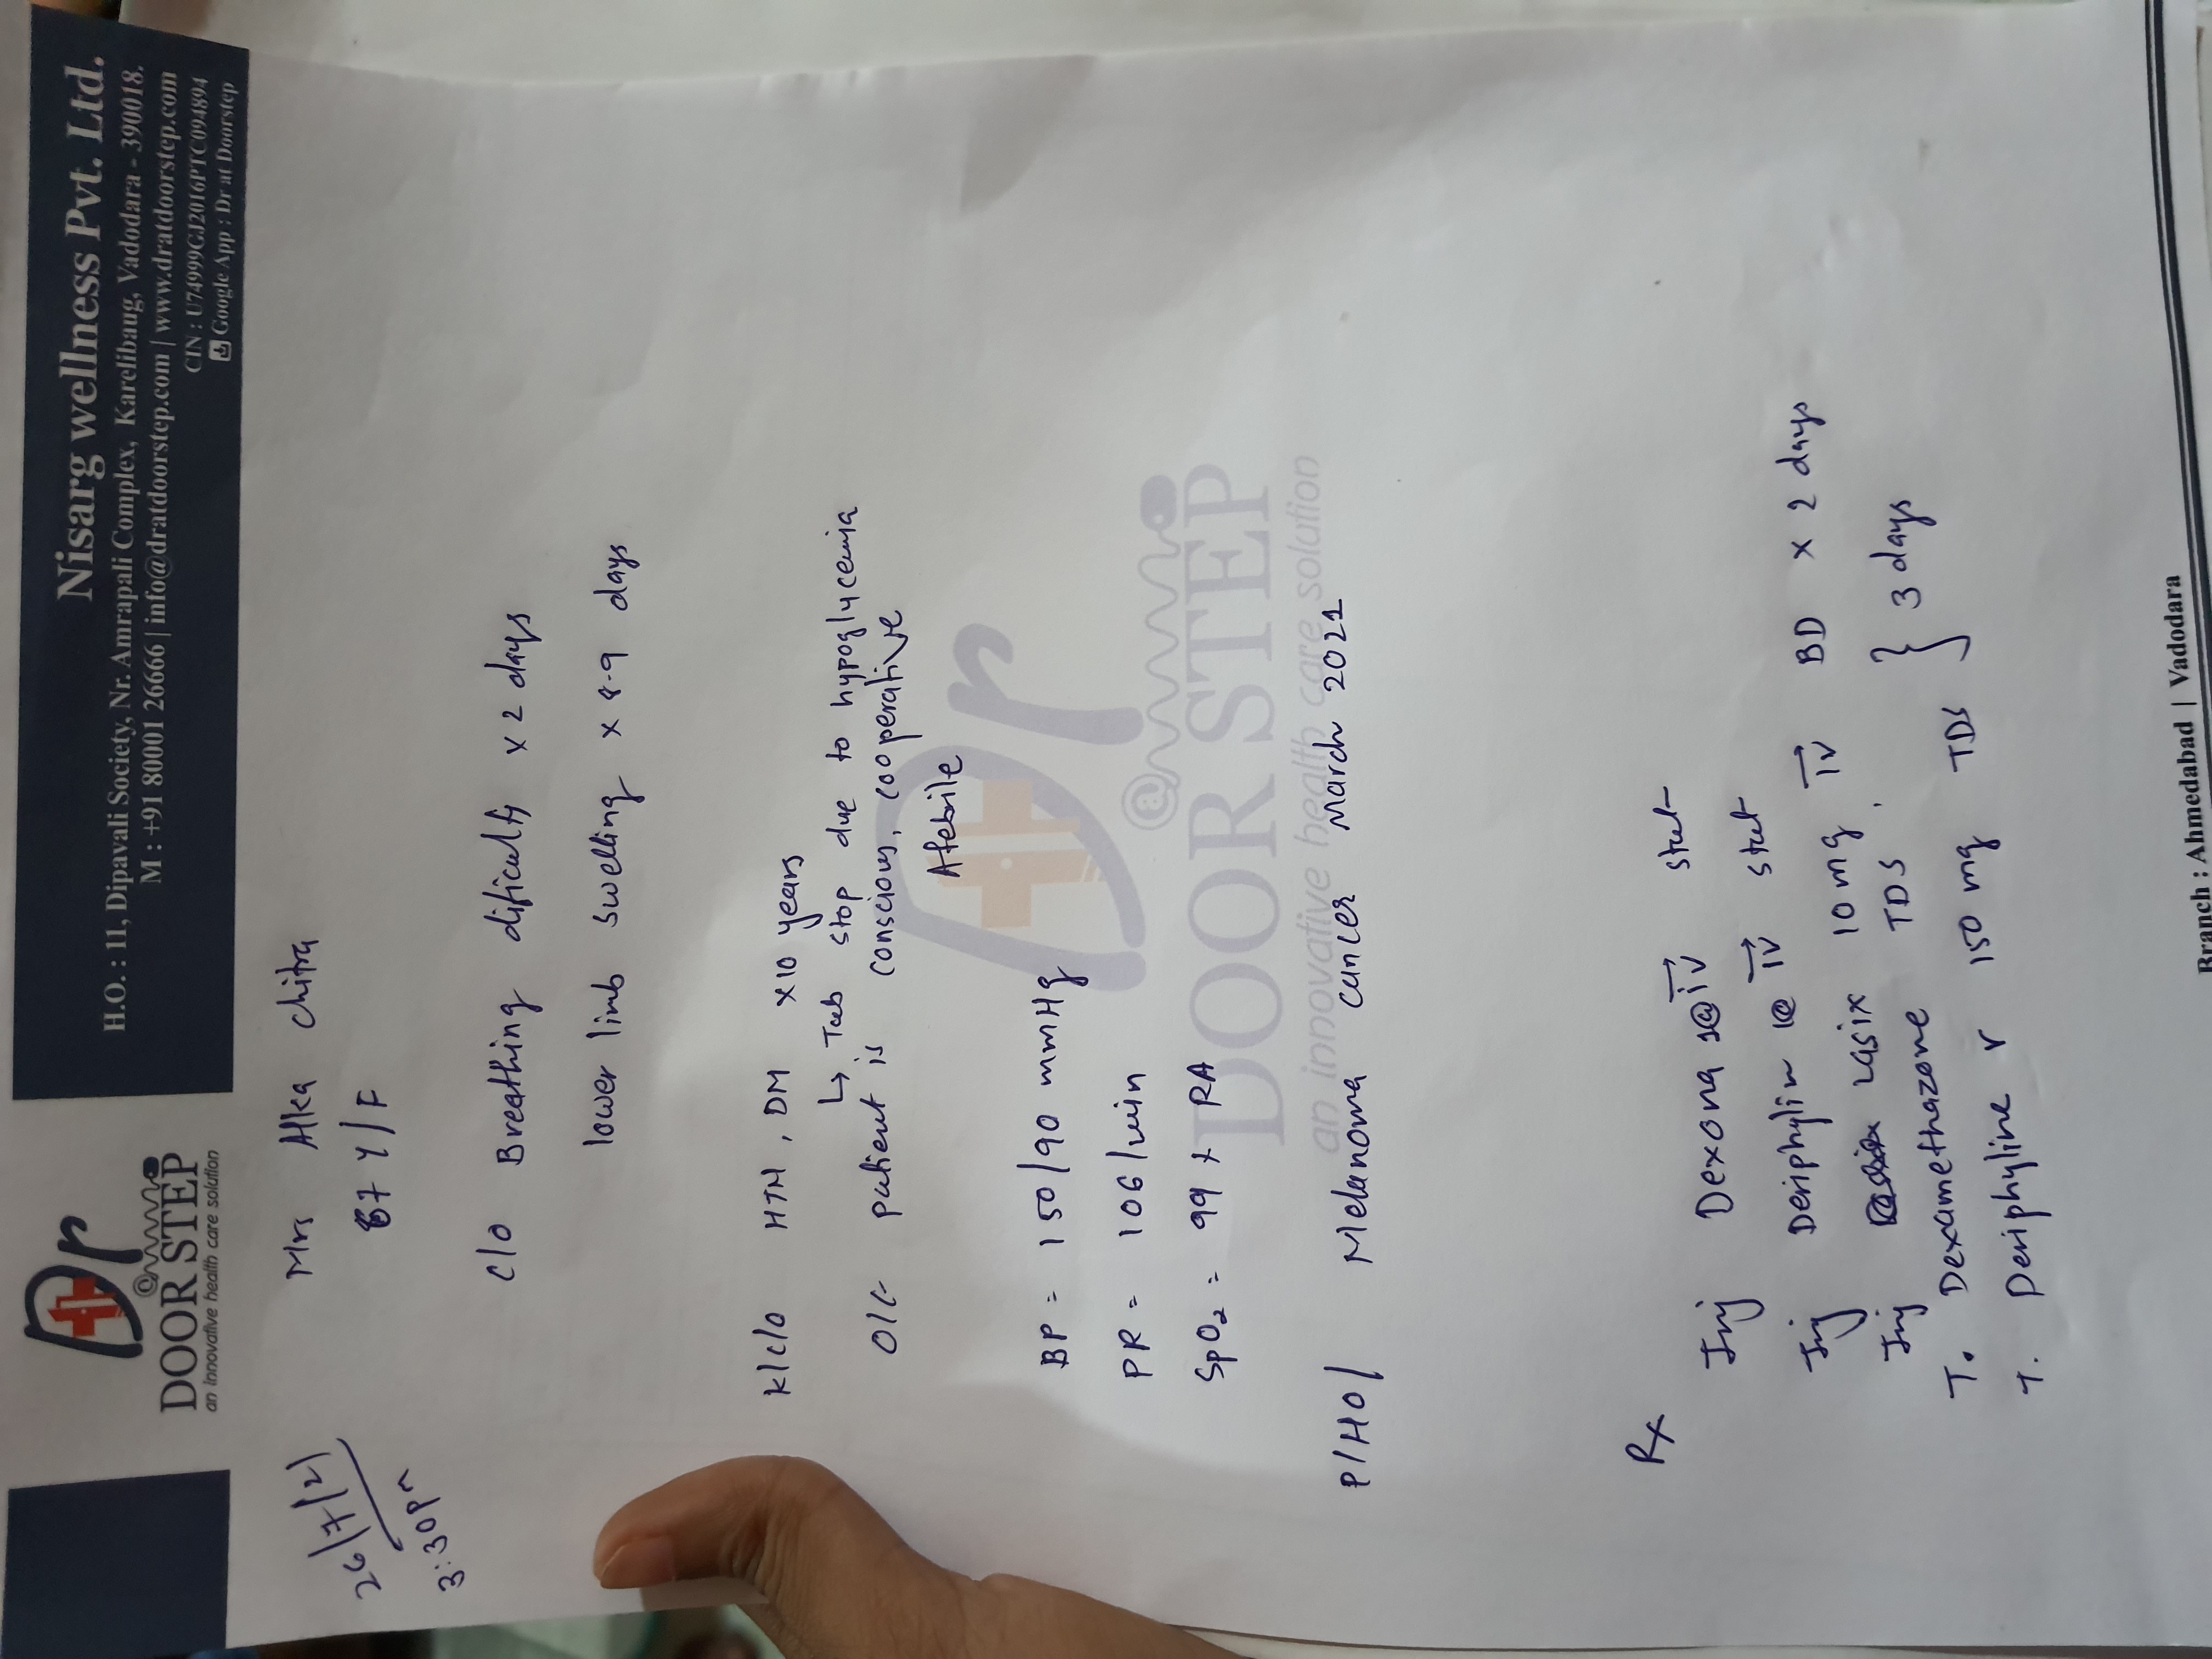 Dr
@
DOOR STEP
an innovative health care solution
Nisarg wellness Pvt. Ltd.
H.O. : 11, Dipavali Society, Nr. Amrapali Complex, Karelibaug, Vadodara - 390018.
M : +91 80001 26666 | info@dratdoorstep.com | www.dratdoorstep.com
CIN : U74999GJ2016PTC094894
Google App : Dr at Doorstep
26/7/21
3:30pm
Mrs Alka Chitra
67 Y/F
C/O Breathing dificulty x 2 days
lower limb swelling x 8-9 days
K/C/O HTN, DM x10 years
↳ Tab stop due to hypoglycemia
O/E patient is conscious, cooperative
Afebrile
BP = 150/90 mmHg
PR = 106/min
SpO2 = 99 % RA
Dr
@
DOOR STEP
an innovative health care solution
P/HO/ Melanoma cancer March 2021
Rx
Inj Dexona 1@ iv stat
Inj Deriphylin 1@ iv stat
Inj Lasix 10 mg iv BD x 2 days
T. Dexamethazone TDS
T. Deriphyline r 150 mg TDS } 3 days
Branch : Ahmedabad | Vadodara